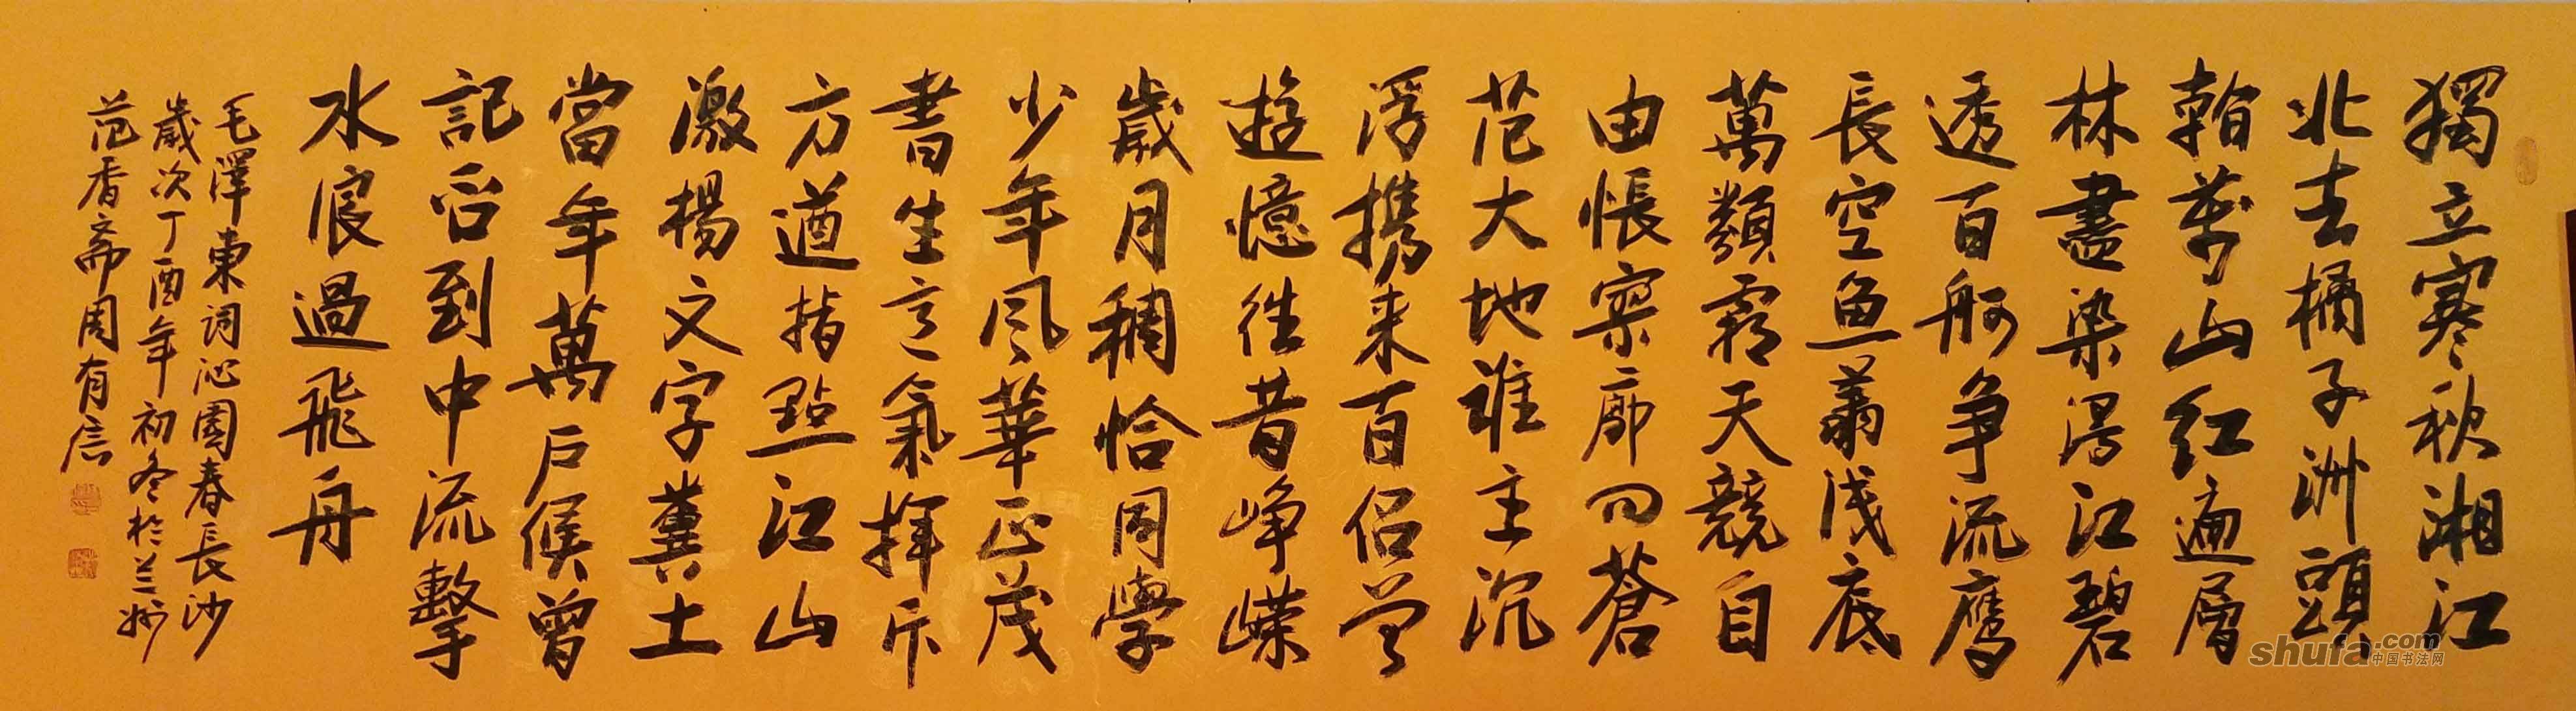 獨立寒秋湘江
北去橘子洲頭
看萬山紅遍層
林盡染漫江碧
透百舸争流鹰
長空魚翔浅底
萬類霜天競自
由悵寥廓问蒼
茫大地谁主沉
浮携来百侣曾
遊憶往昔峥嵘
歲月稠恰同學
少年风華正茂
書生意氣挥斥
方遒指點江山
激揚文字糞土
當年萬户侯曾
記否到中流擊
水浪過飛舟
毛澤東词沁園春長沙
歲次丁酉年初冬於兰州
范香斋周有信
shufa.com
中国书法网